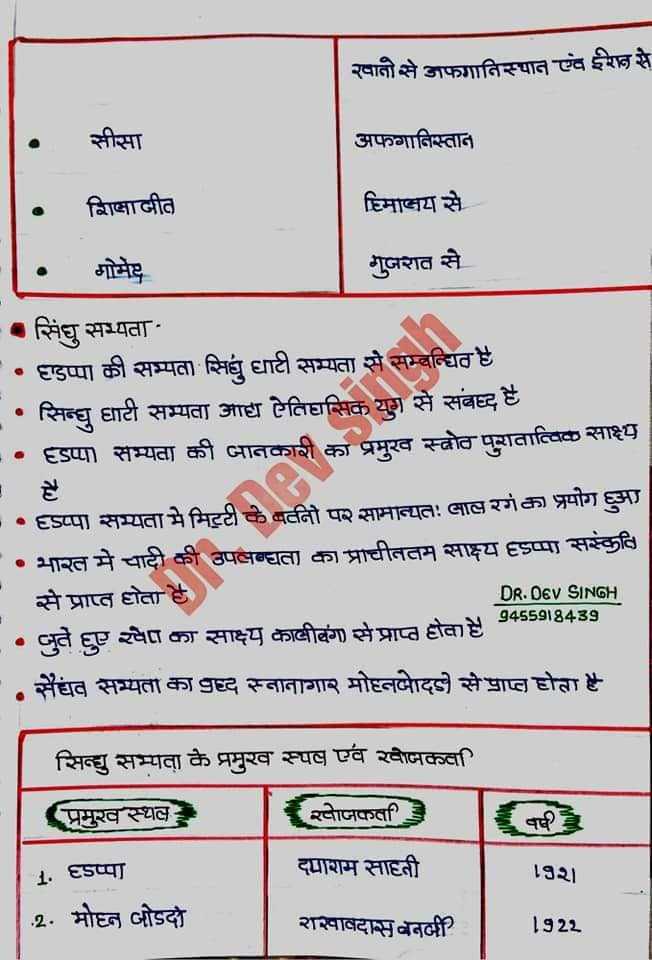 खानो से अफगानिस्थान एंव ईरान से
• सीसा अफगानिस्तान
• शिलाजीत हिमालय से
• गोमेद गुजरात से
• सिंधु सभ्यता -
• हडप्पा की सभ्यता सिधुं घाटी सभ्यता से सम्बन्धित है
• सिन्धु घाटी सभ्यता आद्य ऐतिहासिक युग से संबध्द है
• हडप्पा सभ्यता की जानकारी का प्रमुख स्त्रोत पुरातात्विक साक्ष्य
है
• हडप्पा सभ्यता मे मिट्टी के बर्तनो पर सामान्यतः लाल रगं का प्रयोग हुआ
• भारत मे चादी की उपलब्धता का प्राचीनतम साक्ष्य हडप्पा संस्कृति
से प्राप्त होता है
DR. DEV SINGH
9455918439
• जुते हुए खेत का साक्ष्य कालीबंगा से प्राप्त होता है
• सैंधव सभ्यता का वृहद स्नानागार मोहनजोदडो से प्राप्त होता है
Dr. Dev Singh
सिन्धु सभ्यता के प्रमुख स्थल एंव खोजकर्ता
प्रमुख स्थल खोजकर्ता वर्ष
1. हडप्पा दयाराम साहनी 1921
2. मोहन जोडदो राखालदास बनर्जी 1922